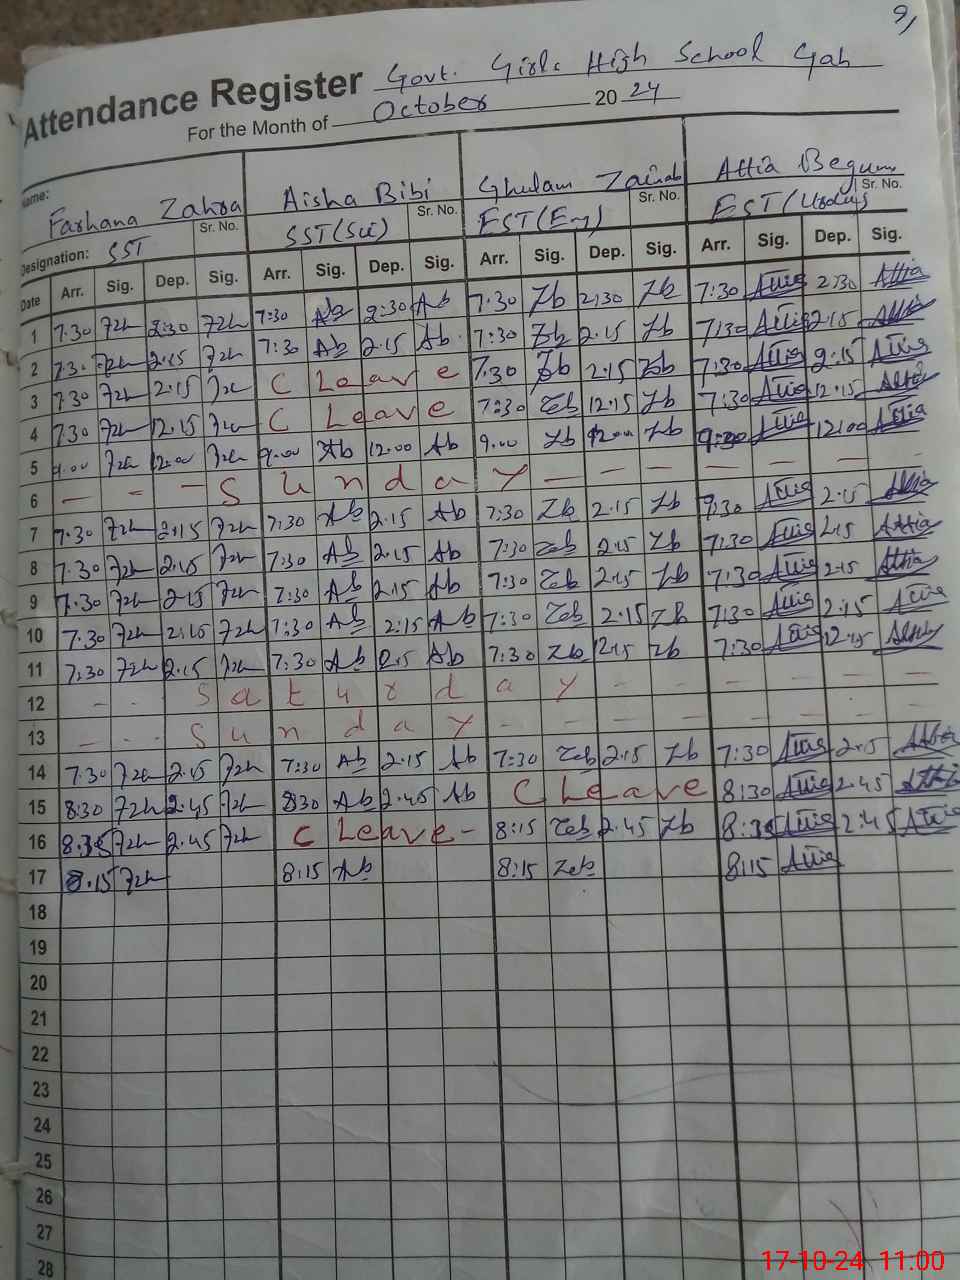 9/
Attendance Register Govt. Girls High School Gah
For the Month of October 2024
Name: Farhana Zahra Aisha Bibi Ghulam Zainab Attia Begum
Designation: SST Sr. No. SST(Sci) Sr. No. EST(Eng) Sr. No. EST(Urdu) Sr. No.
Date Arr. Sig. Dep. Sig. Arr. Sig. Dep. Sig. Arr. Sig. Dep. Sig. Arr. Sig. Dep. Sig.
1 7.30 Fzh 2:30 Fzh 7:30 Ab 2:30 Ab 7:30 Zb 2:30 Zb 7:30 Attia 2:30 Attia
2 7.30 Fzh 2.15 Fzh 7:30 Ab 2.15 Ab 7:30 Zb 2.15 Zb 7:30 Attia 2.15 Attia
3 7.30 Fzh 2.15 Fzh C Leave 7.30 Zb 2.15 Zb 7:30 Attia 2.15 Attia
4 7.30 Fzh 12.15 Fzh C Leave 7:30 Zeb 12.15 Zb 7:30 Attia 12.15 Attia
5 9.00 Fzh 12.00 Fzh 9.00 Ab 12.00 Ab 9.00 Zb 12.00 Zb Attia 12:00 Attia
6 — — — Sunday — — — — — — —
7 7.30 Fzh 2:15 Fzh 7:30 Ab 2.15 Ab 7:30 Zb 2.15 Zb 7:30 Attia 2.15 Attia
8 7:30 Fzh 2.15 Fzh 7:30 Ab 2.15 Ab 7:30 Zeb 2.15 Zb 7:30 Attia 2.15 Attia
9 7.30 Fzh 2.15 Fzh 7:30 Ab 2.15 Ab 7:30 Zeb 2.15 Zb 7:30 Attia 2.15 Attia
10 7:30 Fzh 2:15 Fzh 7:30 Ab 2:15 Ab 7:30 Zeb 2.15 Zb 7:30 Attia 2.15 Attia
11 7:30 Fzh 2.15 Fzh 7:30 Ab 2.15 Ab 7:30 Zb 12.15 Zb 7:30 Attia 12.15 Attia
12 - - Saturday - - - - - -
13 - - - Sunday - - - - - - -
14 7.30 Fzh 2.15 Fzh 7:30 Ab 2.15 Ab 7:30 Zeb 2.15 Zb 7:30 Attia 2.15 Attia
15 8:30 Fzh 2.45 Fzh 8:30 Ab 2.45 Ab C Leave 8:30 Attia 2.45 Attia
16 8:35 Fzh 2.45 Fzh C Leave - 8:15 Zeb 2.45 Zb Attia 2:45 Attia
17 8.15 Fzh 8:15 Ab 8:15 Zeb 8:15 Attia
18
19
20
21
22
23
24
25
26
27
28
17-10-24 11:00